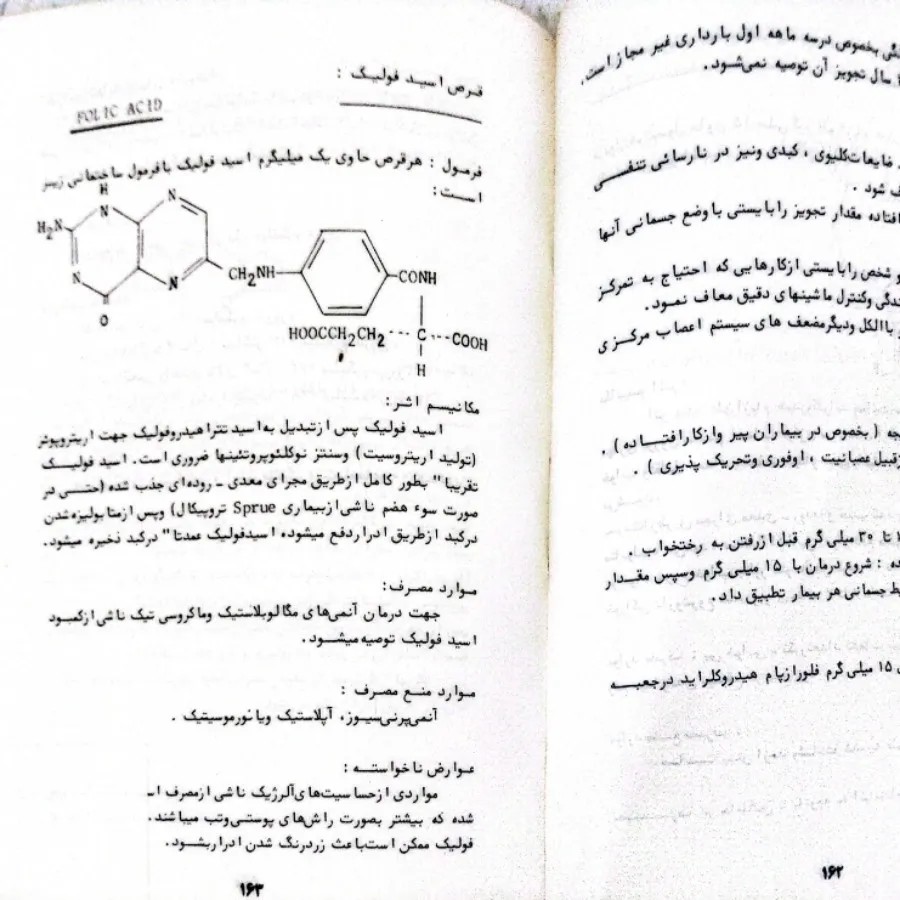 قرص اسید فولیک :
FOLIC ACID
فرمول : هرقرص حاوی یک میلیگرم اسید فولیک با فرمول ساختمانی زیر
است :
H
H₂N
N
N
N
N
O
CH₂NH
CONH
HOOCCH₂CH₂
C
COOH
H
مکانیسم اثر :
اسید فولیک پس ازتبدیل به اسید تتراهیدروفولیک جهت اریتروپوئز
(تولید اریتروسیت) وسنتز نوکلئوپروتئینها ضروری است . اسید فولیک
تقریبا" بطور کامل ازطریق مجرای معدی ـ روده‌ای جذب شده (حتی در
صورت سوء هضم ناشی ازبیماری Sprue تروپیکال) وپس ازمتابولیزه شدن
درکبد ازطریق ادراردفع میشوده اسیدفولیک عمدتا" درکبد نخیره میشود.
موارد مصرف :
جهت درمان آنمی‌های مگالوبلاستیک وماکروسی تیک ناشی ازکمبود
اسید فولیک توصیه میشود .
موارد منع مصرف :
آنمی‌پرنی‌سیوز، آپلاستیک ویا نورموسیتیک .
عوارض ناخواسته :
مواردی ازحساسیت‌های‌آلرژیک ناشی ازمصرف اس
شده که بیشتر بصورت راش‌های پوستی‌وتب میباشند .
فولیک ممکن است‌باعث زردرنگ شدن ادراربشود .
۱۶۳
بخصوص درسه ماهه اول بارداری غیر مجاز است .
سال تجویز آن توصیه نمی‌شود .
ضایعات‌کلیوی ، کبدی ونیز در نارسائی تنفسی
شود .
افتاده مقدار تجویز رابایستی با وضع جسمانی آنها
و شخص رابایستی ازکارهایی که احتیاج به تمرکز
وکنترل ماشینهای دقیق معاف نمود .
باالکل ودیگرمضعف های سیستم اعصاب مرکزی
( بخصوص در بیماران پیر وازکارافتاده ) .
عصبانیت ، اوفوری وتحریک پذیری ) .
تا ۳۰ میلی گرم قبل ازرفتن به رختخواب .
: شروع درمان با ۱۵ میلی گرم وسپس مقدار
جسمانی هر بیمار تطبیق داد .
۱۵ میلی گرم فلورازپام هیدروکلراید درجعبه
۱۶۲